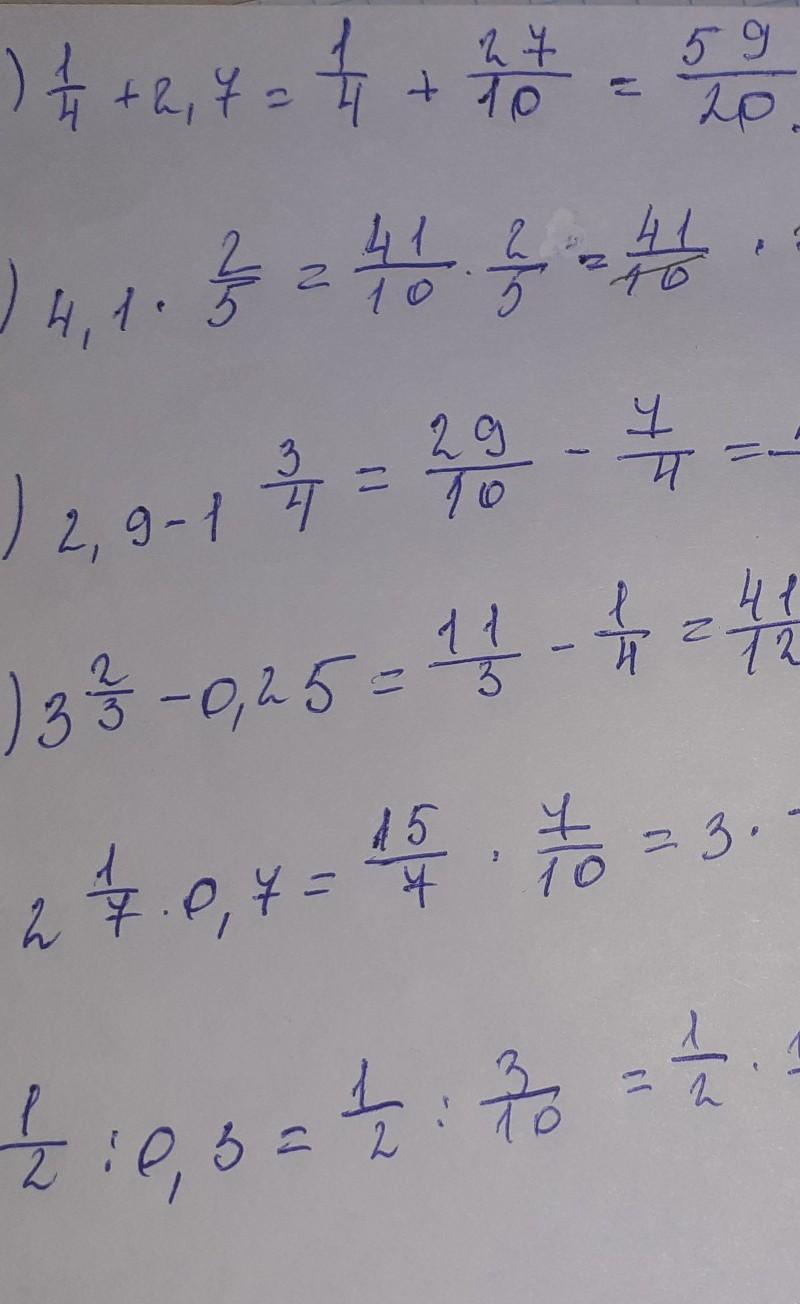 ) 1/4 + 2,7 = 1/4 + 27/10 = 59/20
) 4,1 · 2/5 = 41/10 · 2/5 = 41/10 ·
) 2,9 - 1 3/4 = 29/10 - 7/4 =
) 3 2/3 - 0,25 = 11/3 - 1/4 = 41/12
2 1/7 · 0,7 = 15/7 · 7/10 = 3 ·
1/2 : 0,3 = 1/2 : 3/10 = 1/2 ·